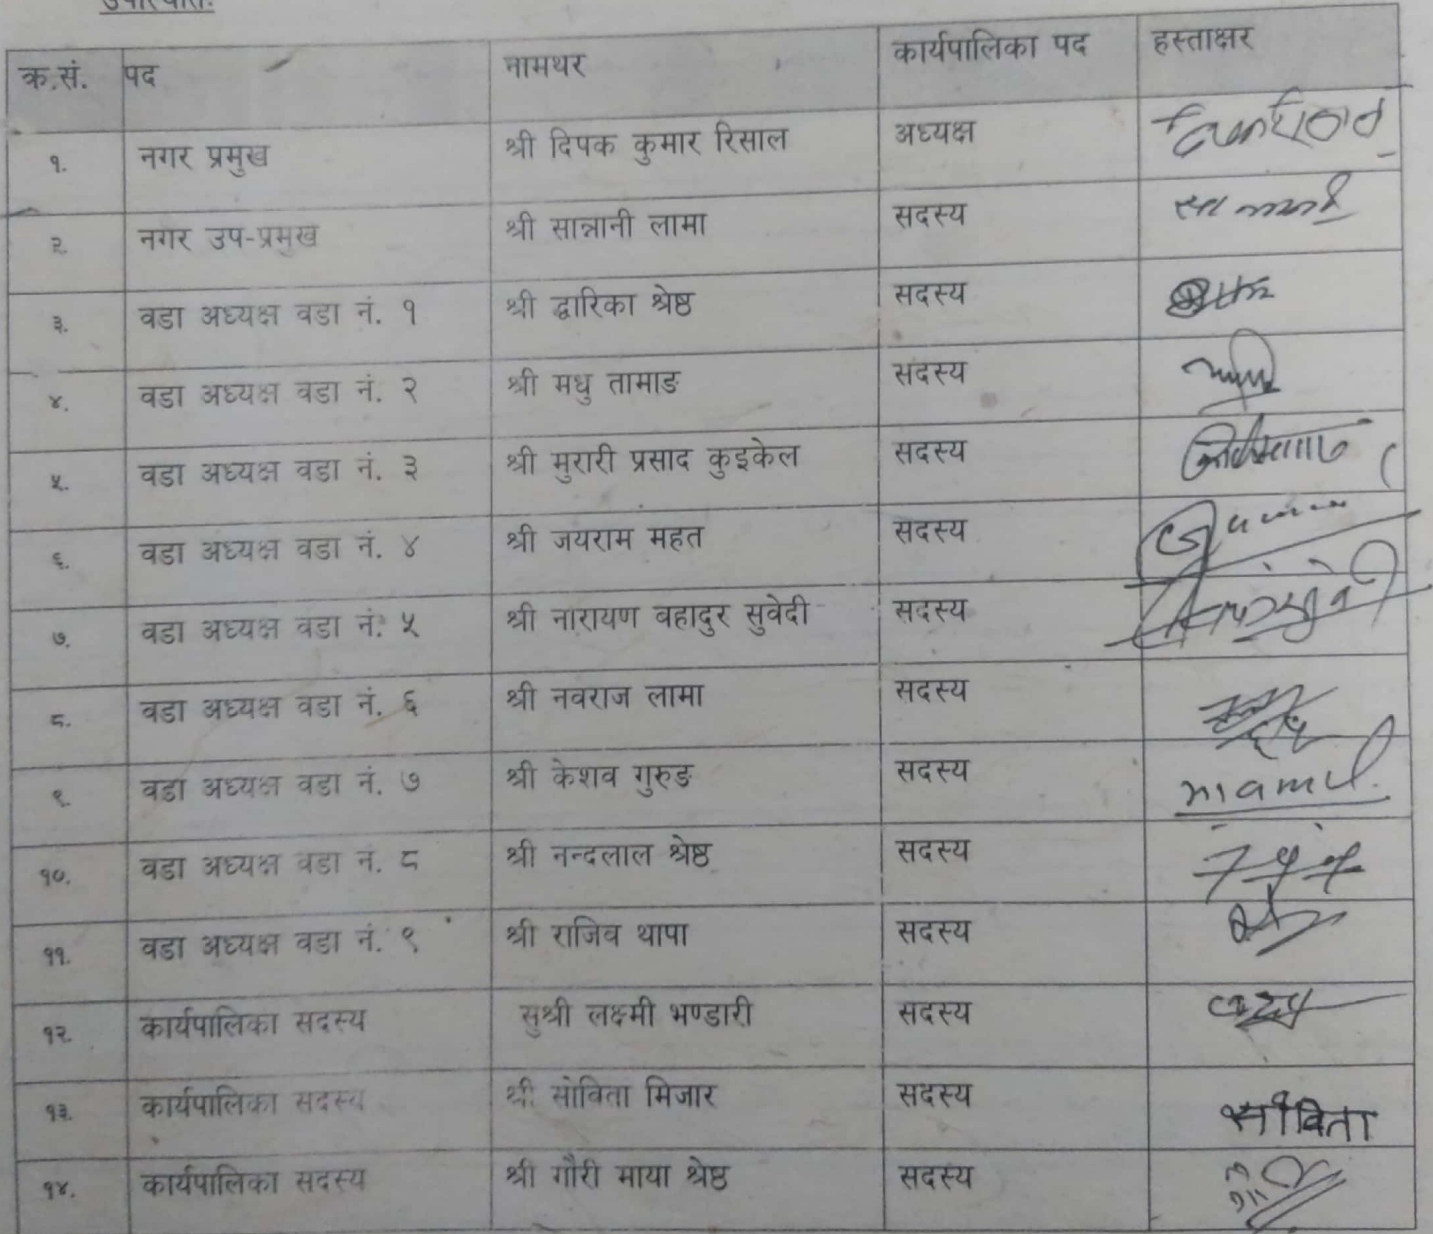 उपस्थितिः
क्र.सं. पद नामथर कार्यपालिका पद हस्ताक्षर
१. नगर प्रमुख श्री दिपक कुमार रिसाल अध्यक्ष
२. नगर उप-प्रमुख श्री सान्नानी लामा सदस्य
३. वडा अध्यक्ष वडा नं. १ श्री द्वारिका श्रेष्ठ सदस्य
४. वडा अध्यक्ष वडा नं. २ श्री मधु तामाङ सदस्य
५. वडा अध्यक्ष वडा नं. ३ श्री मुरारी प्रसाद कुइकेल सदस्य
६. वडा अध्यक्ष वडा नं. ४ श्री जयराम महत सदस्य
७. वडा अध्यक्ष वडा नं. ५ श्री नारायण वहादुर सुवेदी सदस्य
८. वडा अध्यक्ष वडा नं. ६ श्री नवराज लामा सदस्य
९ वडा अध्यक्ष वडा नं. ७ श्री केशव गुरुङ सदस्य
१०. वडा अध्यक्ष वडा नं. ८ श्री नन्दलाल श्रेष्ठ सदस्य
११. वडा अध्यक्ष वडा नं. ९ श्री राजिव थापा सदस्य
१२. कार्यपालिका सदस्य सुश्री लक्ष्मी भण्डारी सदस्य
१३. कार्यपालिका सदस्य श्री सोविता मिजार सदस्य सोविता
१४. कार्यपालिका सदस्य श्री गौरी माया श्रेष्ठ सदस्य